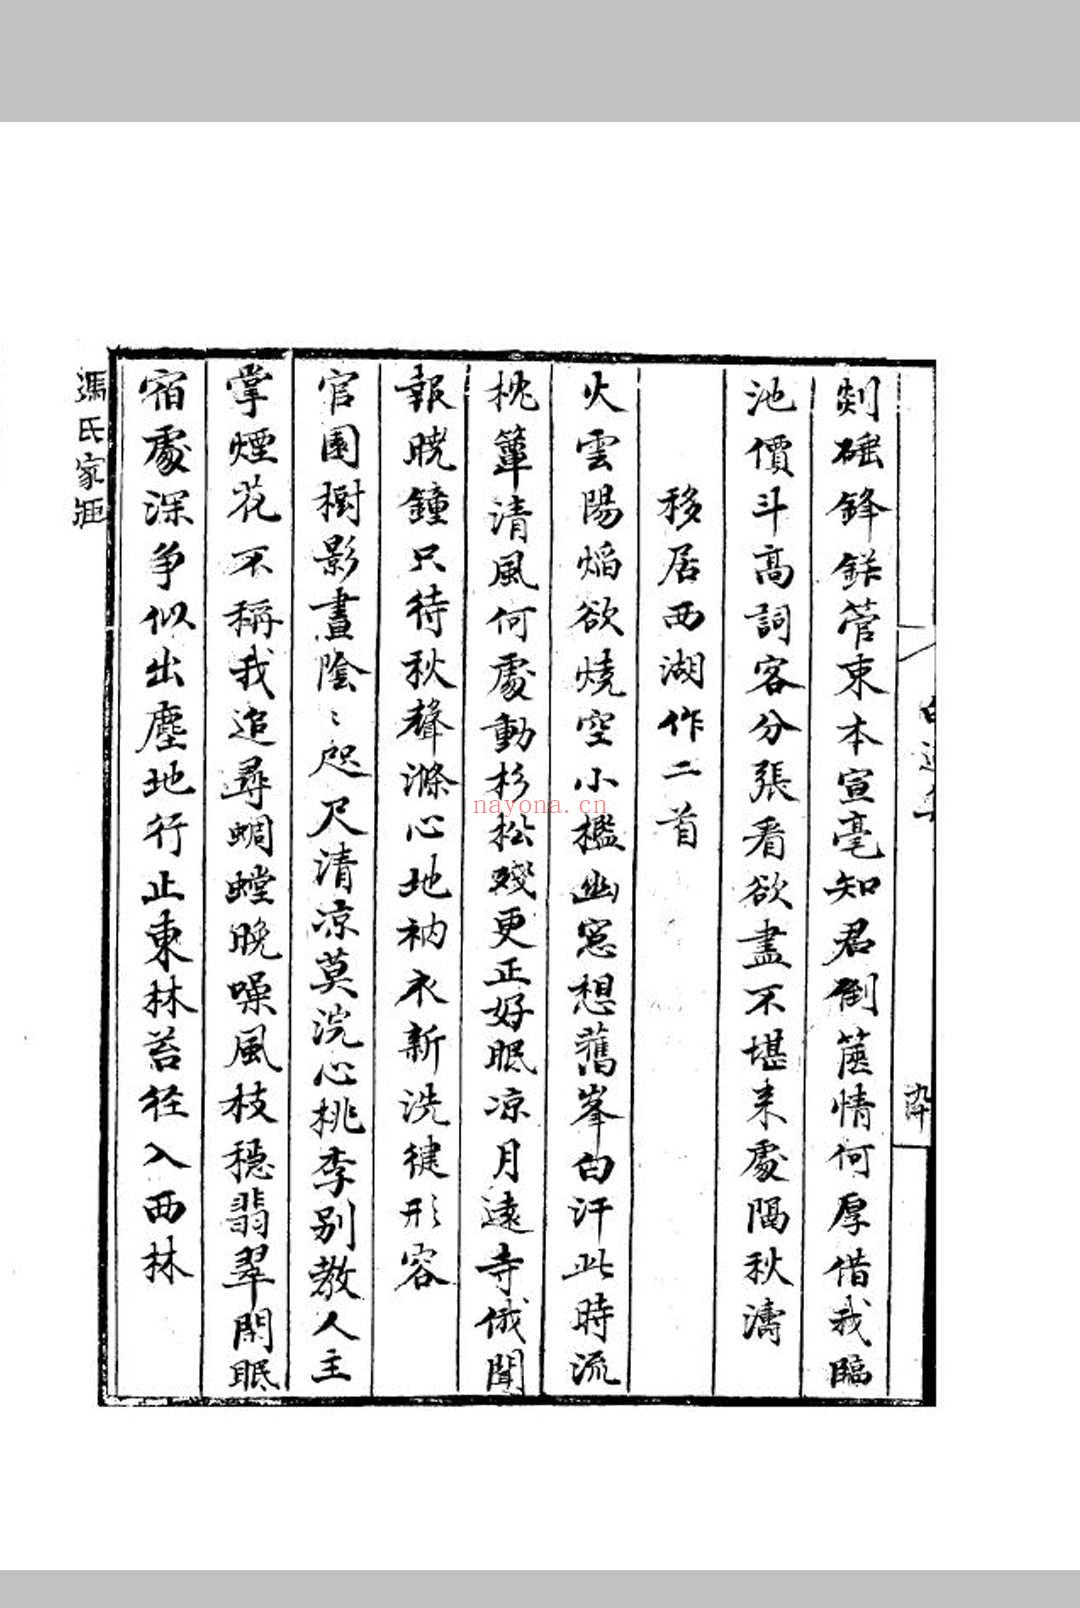 剡硾鋒鋩管束本宣毫知君倒篋情何厚借我臨
池價斗高詞客分張看欲盡不堪来處隔秋濤
移居西湖作二首
火雲陽焰欲燒空小檻幽窓想舊峯白汗此時流
枕簟清風何處動杉松殘更正好眠凉月遠寺俄聞
報曉鐘只待秋聲滌心地衲衣新洗健形容
官園樹影晝陰〻咫尺清凉莫浣心桃李别教人主
掌煙花不稱我追尋蜩螗晚噪風枝穏翡翠閑眠
宿處深爭似出塵地行止東林苔径入西林
馮氏家
nayona.cn